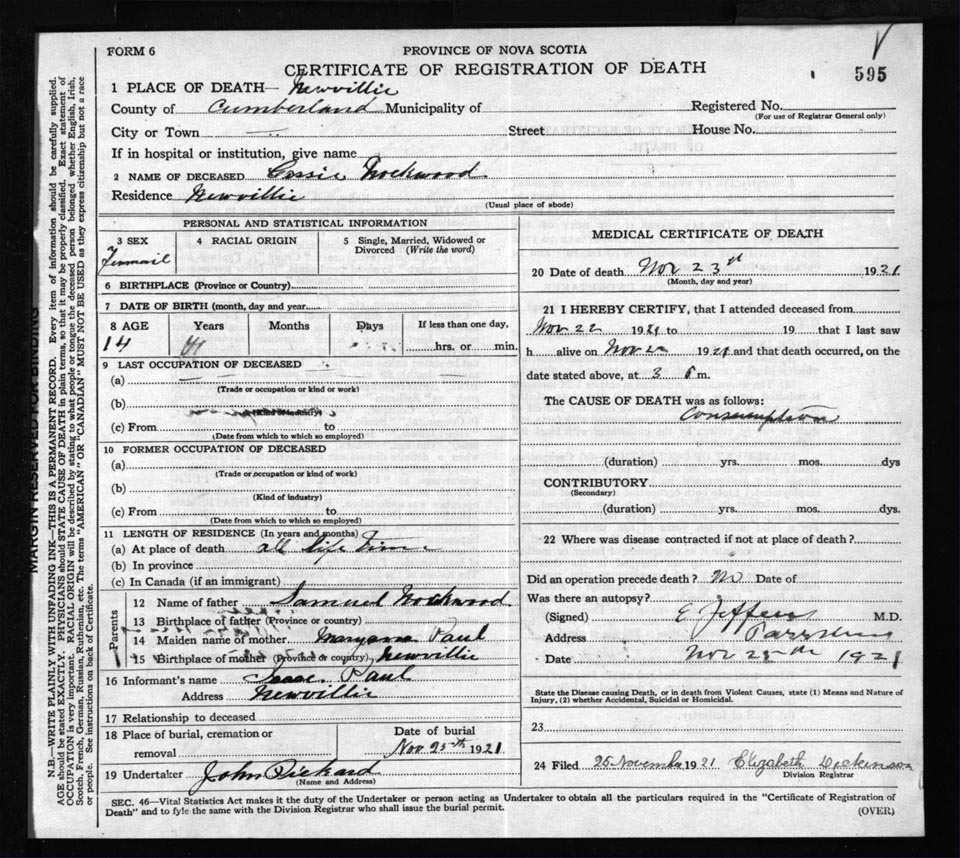 FORM 6
PROVINCE OF NOVA SCOTIA
CERTIFICATE OF REGISTRATION OF DEATH
595
1 PLACE OF DEATH— Newvillie
County of Cumberland Municipality of Registered No.
(For use of Registrar General only)
City or Town Street House No.
If in hospital or institution, give name
2 NAME OF DECEASED Cassie Nockwood
Residence Newvillie
(Usual place of abode)
PERSONAL AND STATISTICAL INFORMATION
3 SEX 4 RACIAL ORIGIN 5 Single, Married, Widowed or Divorced (Write the word)
Femail
6 BIRTHPLACE (Province or Country)
7 DATE OF BIRTH (month, day and year)
8 AGE Years Months Days If less than one day,
14 hrs. or min.
9 LAST OCCUPATION OF DECEASED
(a)
(Trade or occupation or kind or work)
(b)
(Kind of industry)
(c) From to
(Date from which to which so employed)
10 FORMER OCCUPATION OF DECEASED
(a)
(Trade or occupation or kind of work)
(b)
(Kind of industry)
(c) From to
(Date from which to which so employed)
11 LENGTH OF RESIDENCE (In years and months)
(a) At place of death all life time
(b) In province
(c) In Canada (if an immigrant)
Parents
12 Name of father Samuel Nockwood
13 Birthplace of father (Province or country)
14 Maiden name of mother Maryann Paul
15 Birthplace of mother (Province or country) Newvillie
16 Informant's name Isaac Paul
Address Newvillie
17 Relationship to deceased
18 Place of burial, cremation or removal
Date of burial
Nov 25th 1921
19 Undertaker John Rickard
(Name and Address)
MEDICAL CERTIFICATE OF DEATH
20 Date of death Nov 23rd 1921
(Month, day and year)
21 I HEREBY CERTIFY, that I attended deceased from
Nov 22 1921 to 19 that I last saw
h alive on Nov 22 1921 and that death occurred, on the
date stated above, at 3 m.
The CAUSE OF DEATH was as follows:
Consumption
(duration) yrs. mos. dys
CONTRIBUTORY
(Secondary)
(duration) yrs. mos. dys.
22 Where was disease contracted if not at place of death?
Did an operation precede death? No Date of
Was there an autopsy?
(Signed) E Jeffers M.D.
Address Parrsboro
Date Nov 25th 1921
State the Disease causing Death, or in death from Violent Causes, state (1) Means and Nature of
Injury, (2) whether Accidental, Suicidal or Homicidal.
23
24 Filed 25 November 1921 Elizabeth Dickinson
Division Registrar
SEC. 46—Vital Statistics Act makes it the duty of the Undertaker or person acting as Undertaker to obtain all the particulars required in the "Certificate of Registration of
Death" and to fyle the same with the Division Registrar who shall issue the burial permit.
(OVER)
MARGIN RESERVED FOR BINDING
N.B.—WRITE PLAINLY WITH UNFADING INK—THIS IS A PERMANENT RECORD. Every item of information should be carefully supplied.
AGE should be stated EXACTLY. PHYSICIANS should STATE CAUSE OF DEATH in plain terms, so that it may be properly classified. Exact statement of
OCCUPATION is very important. RACIAL ORIGIN will be described by stating to what people or tongue the deceased person belonged whether English, Irish,
Scotch, French, German, Russian, Ruthenian, etc. The terms "AMERICAN" OR "CANADIAN" MUST NOT BE USED as they express citizenship but not a race
or people. See instructions on back of Certificate.